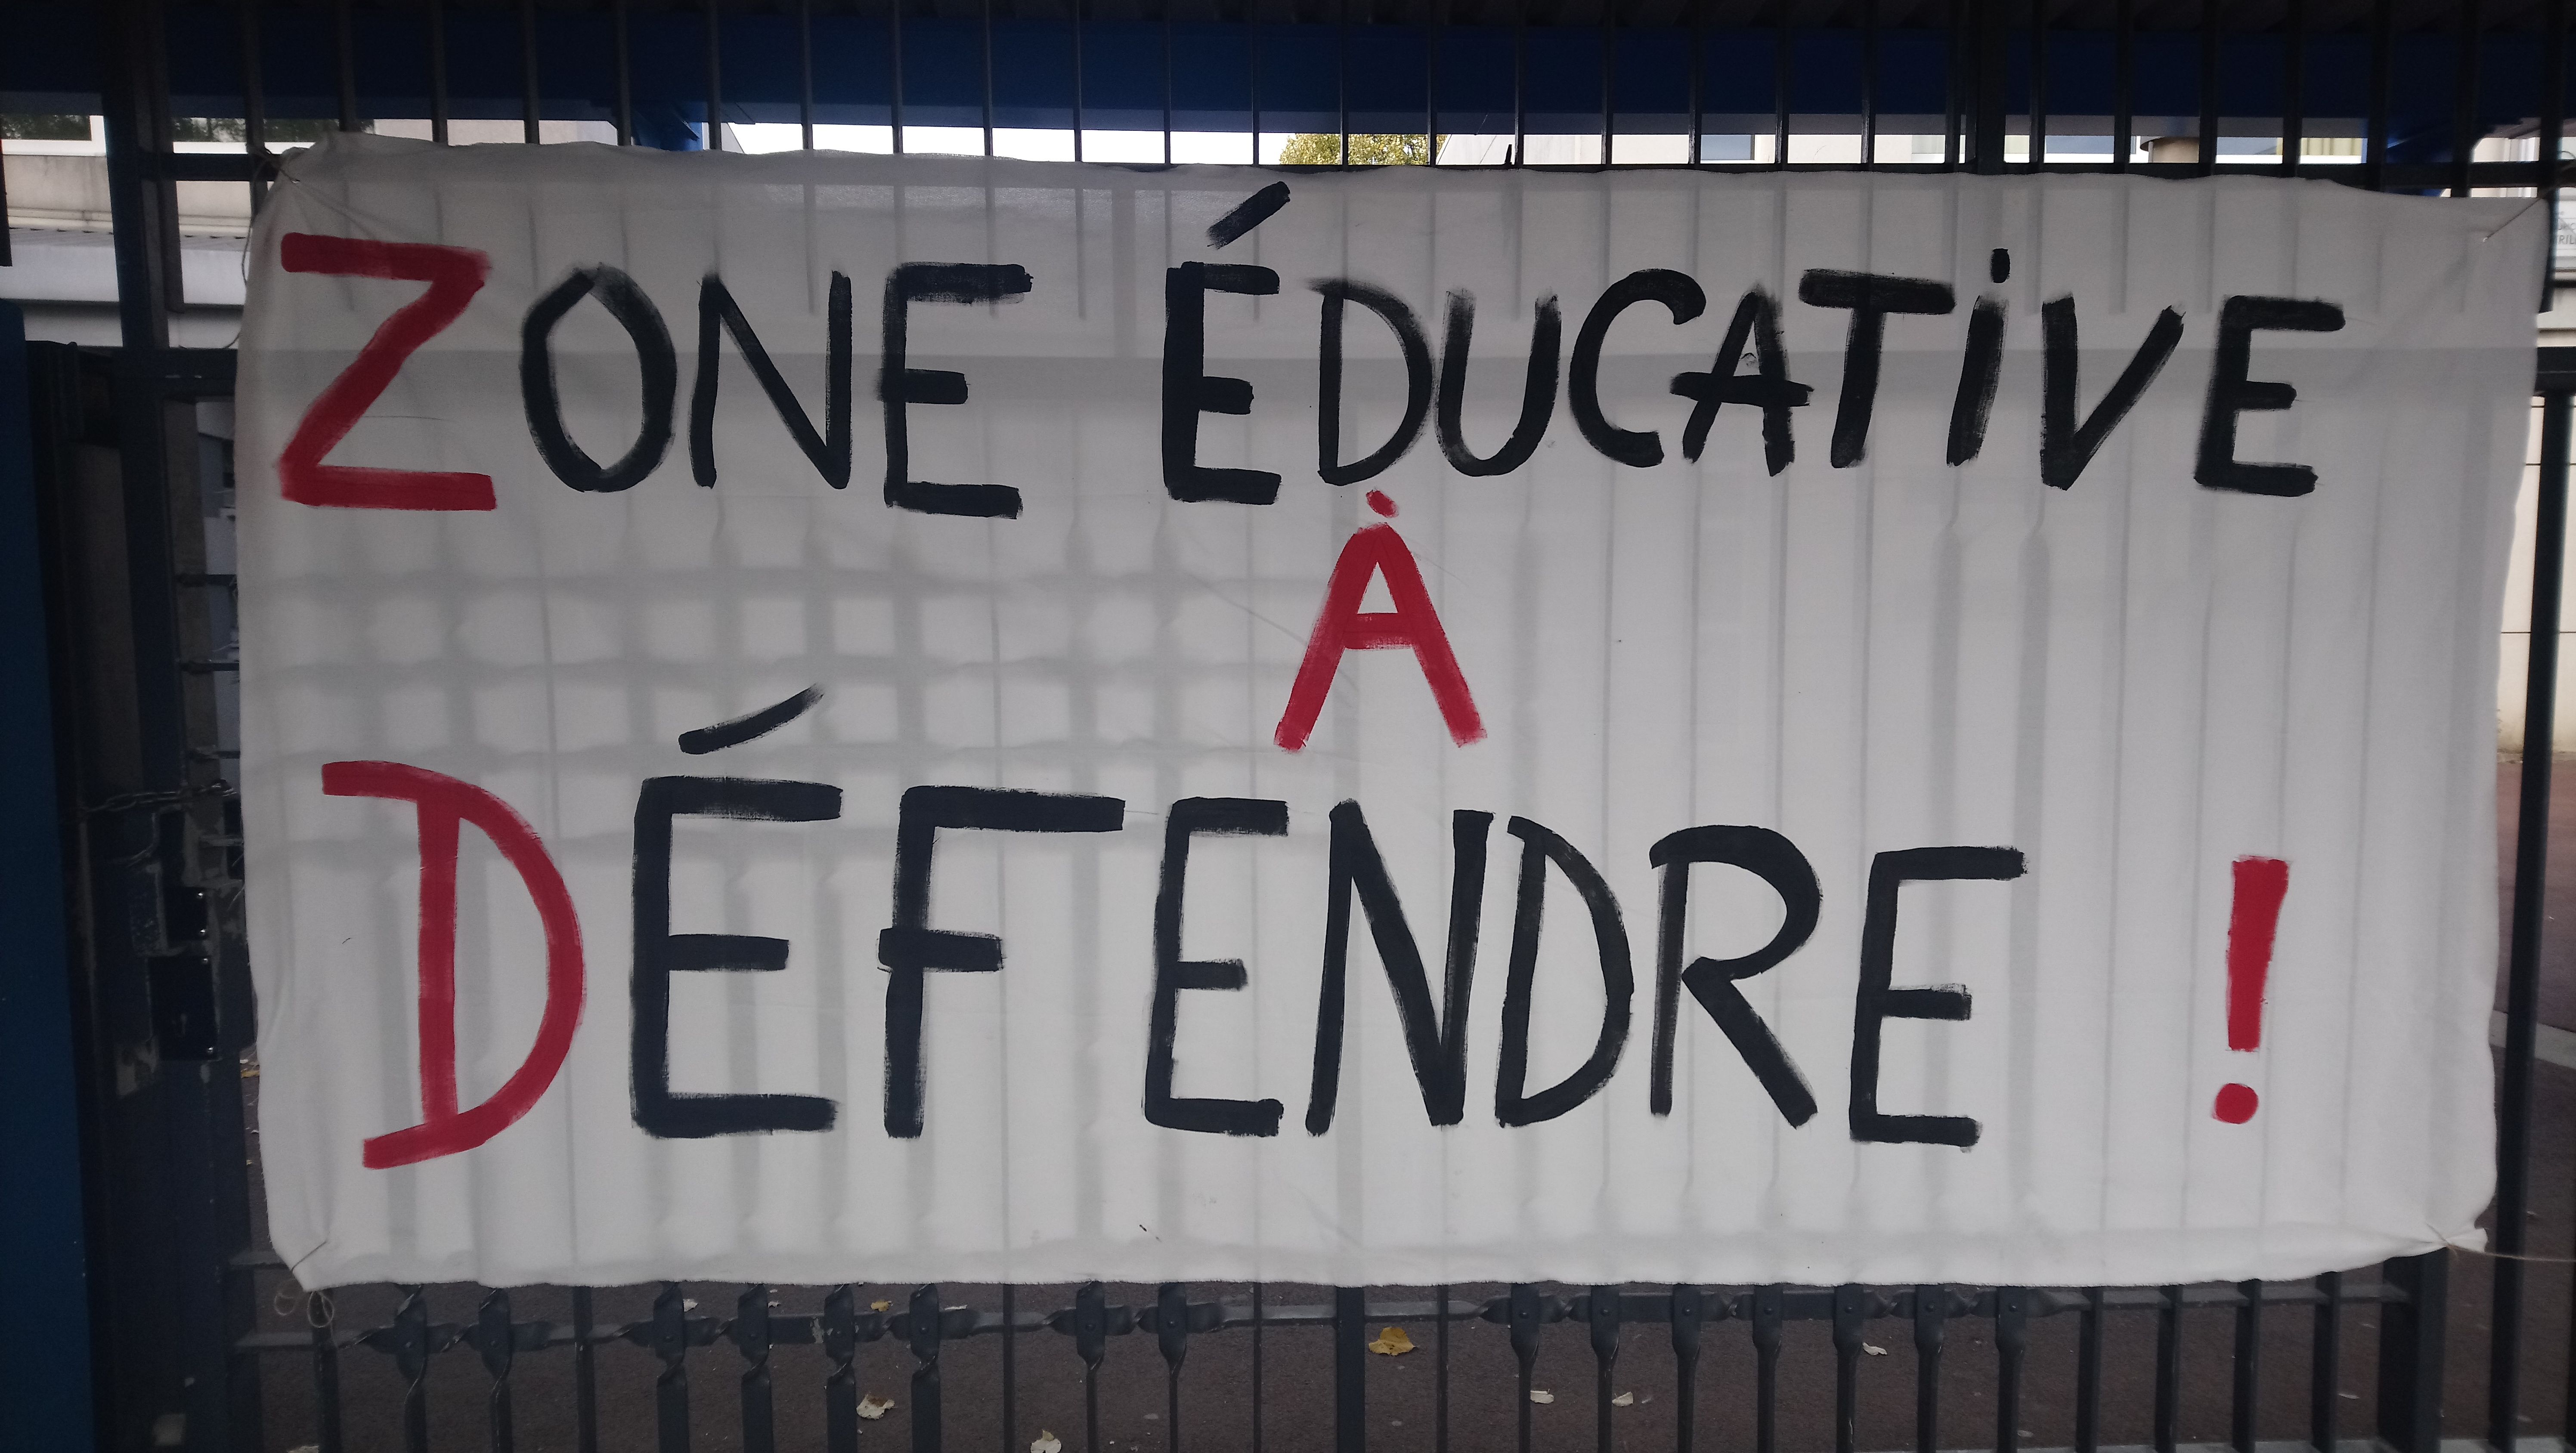 ZONE ÉDUCATiVE
À
DÉFENDRE !